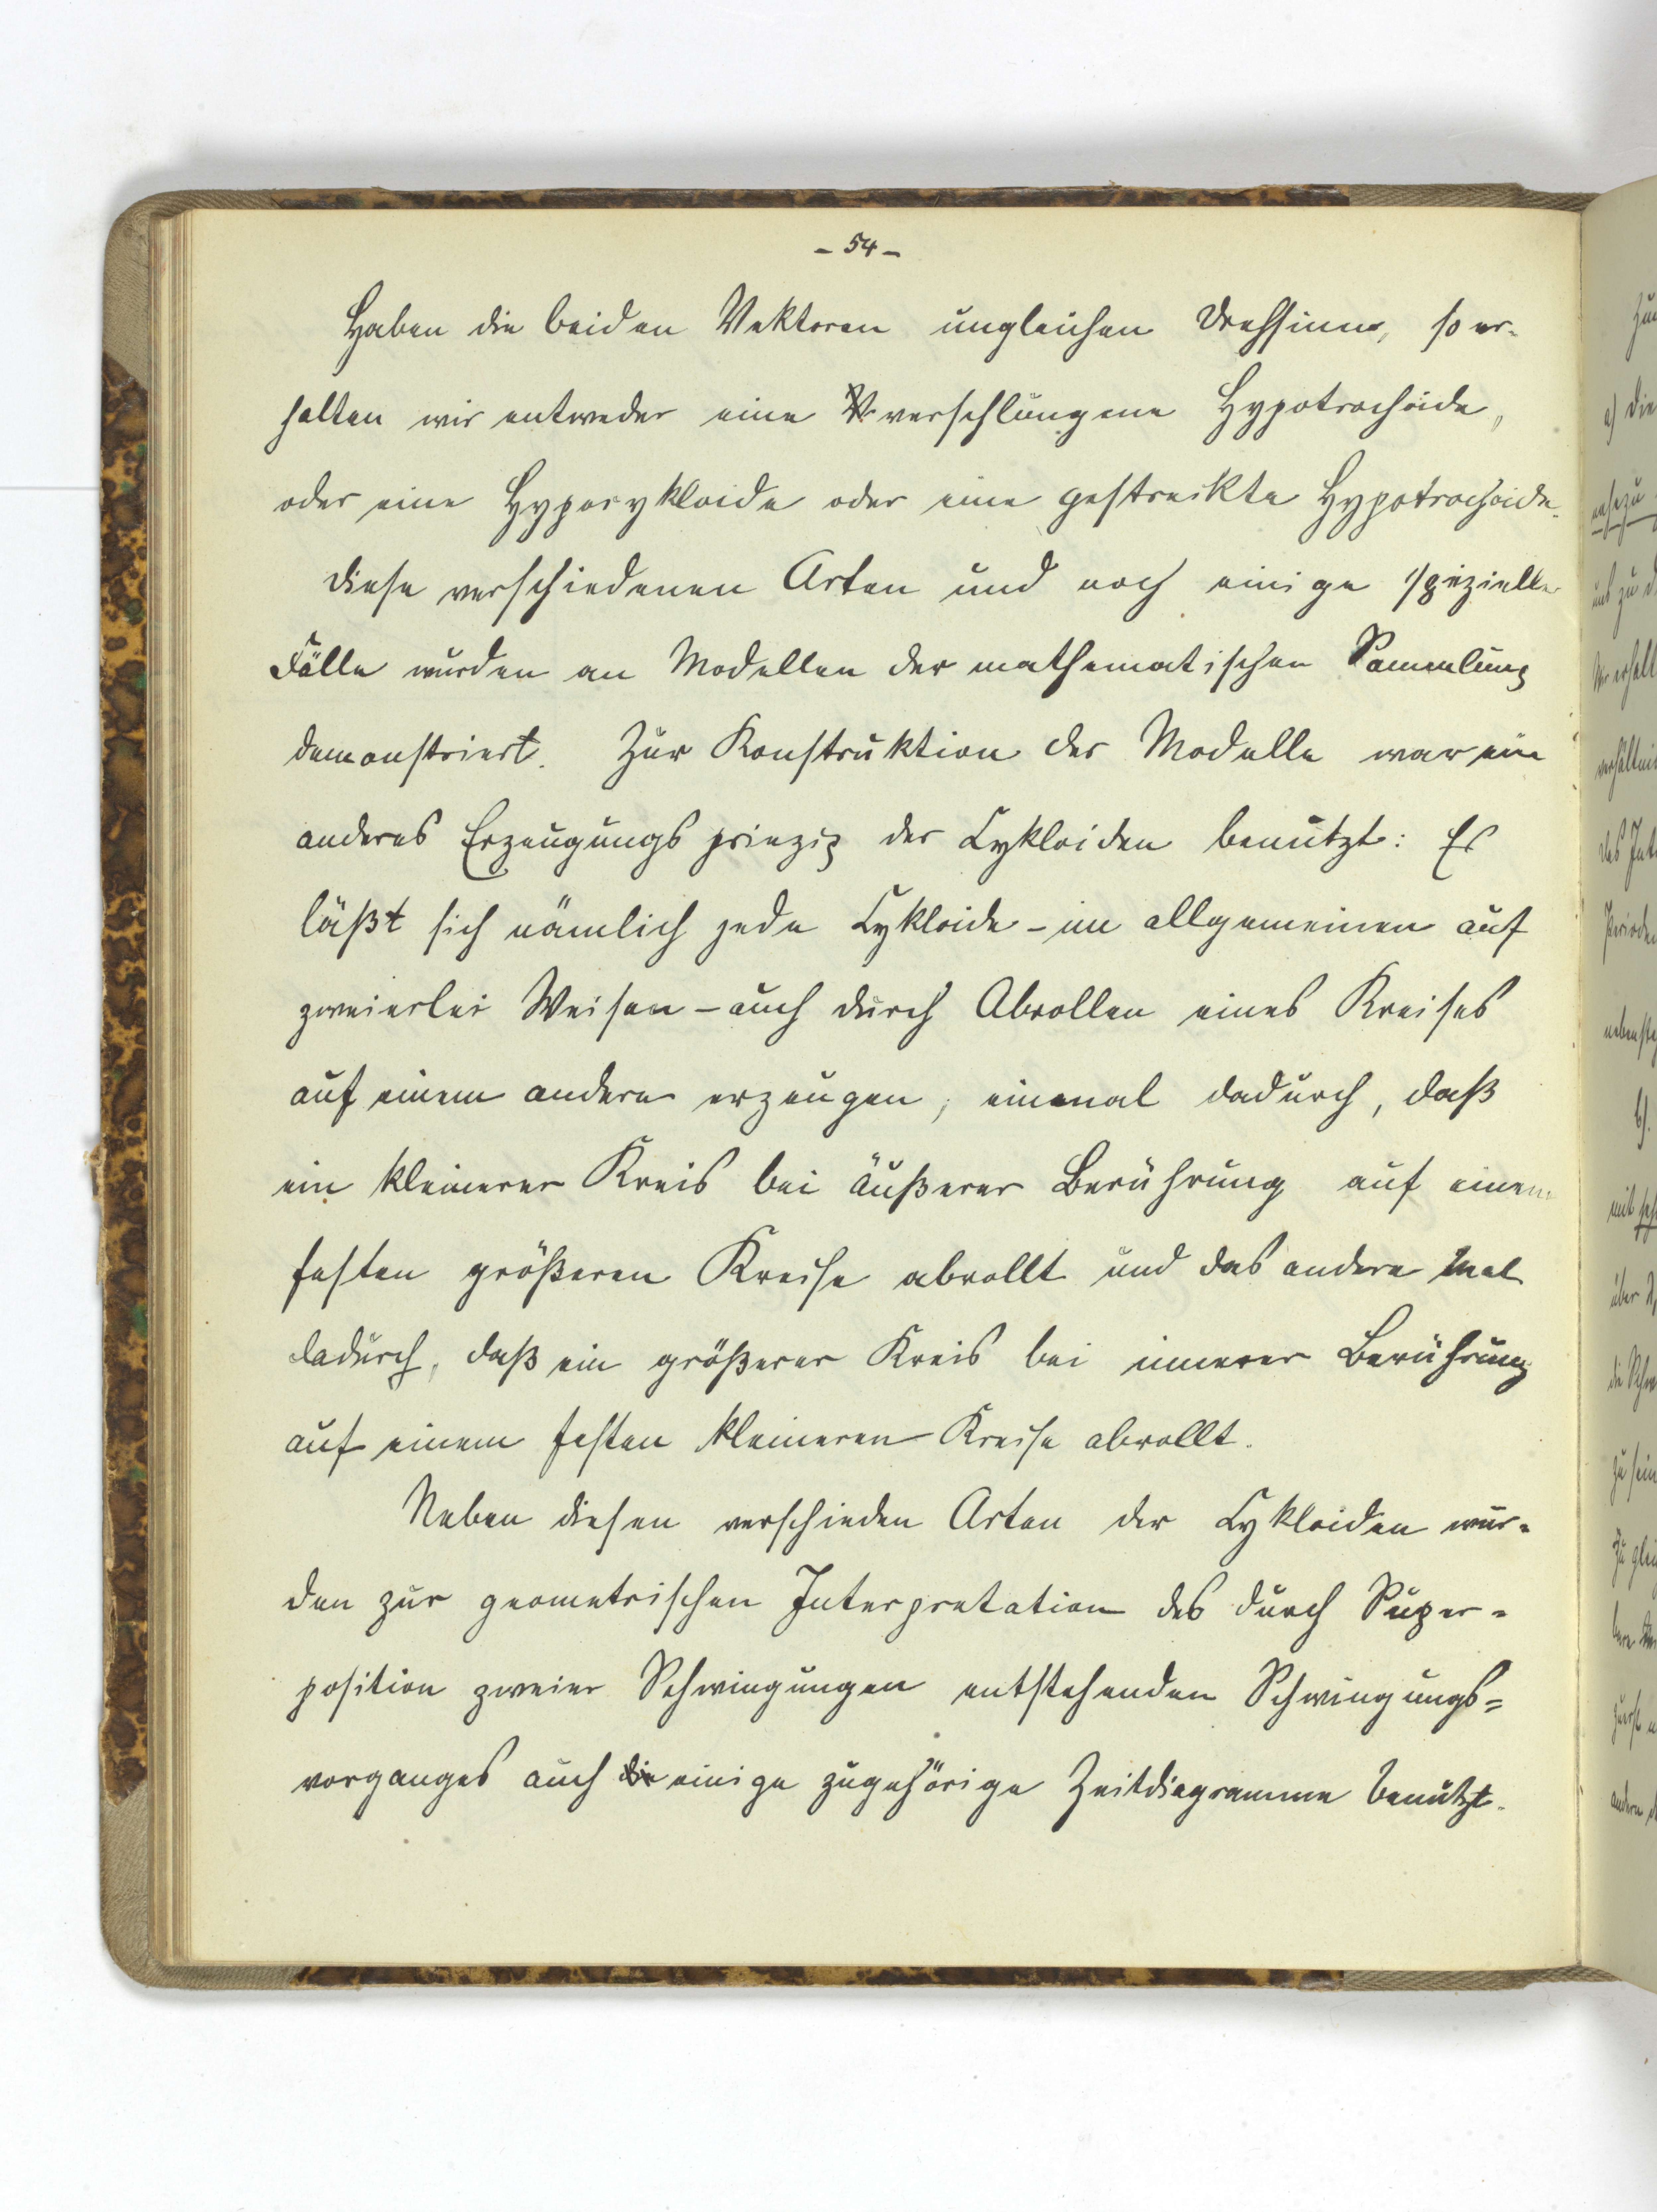 - 54 -
Haben die beiden Vektoren ungleichen Drehsinn, so er-
halten wir entweder eine verschlungene Hypotrochoide,
oder eine Hypocykloide oder eine gestreckte Hypotrochoide.
Diese verschiedenen Arten und noch einige spezielle
Fälle wurden an Modellen der mathematischen Sammlung
demonstriert. Zur Konstruktion der Modelle war ein
anderes Erzeugungsprinzip der Cykloiden benutzt: Es
läßt sich nämlich jede Cykloide - im allgemeinen auf
zweierlei Weisen - auch durch Abrollen eines Kreises
auf einem andern erzeugen, einmal dadurch, daß
ein kleinerer Kreis bei äußerer Berührung auf einem
festen größeren Kreise abrollt und das andere Mal
dadurch, daß ein größerer Kreis bei innerer Berührung
auf einem festen kleineren Kreise abrollt.
Neben diesen verschieden Arten der Cykloiden wur-
den zur geometrischen Interpretation des durch Super-
position zweier Schwingungen entstehenden Schwingungs-
vorganges auch die einige zugehörige Zeitdiagramme benutzt.